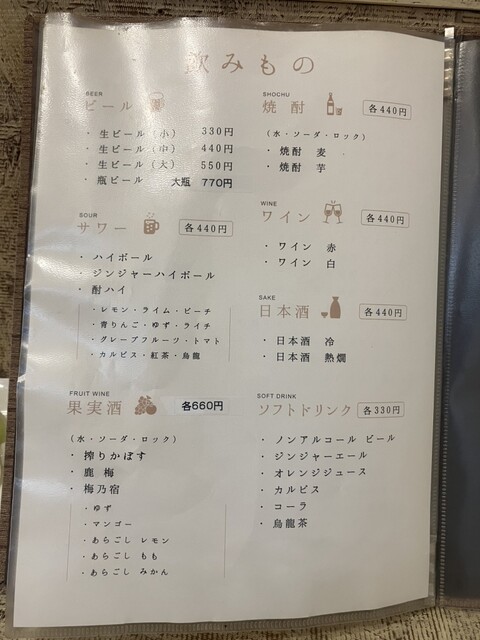 飲みもの
BEER
ビール
・ 生ビール（小） 330円
・ 生ビール（中） 440円
・ 生ビール（大） 550円
・ 瓶ビール 大瓶 770円
SOUR
サワー 各440円
・ ハイボール
・ ジンジャーハイボール
・ 酎ハイ
・レモン・ライム・ピーチ
・青りんご・ゆず・ライチ
・グレープフルーツ・トマト
・カルピス・紅茶・烏龍
FRUIT WINE
果実酒 各660円
（水・ソーダ・ロック）
・ 搾りかぼす
・ 鹿 梅
・ 梅乃宿
・ゆず
・マンゴー
・あらごし レモン
・あらごし もも
・あらごし みかん
SHOCHU
焼酎 各440円
（水・ソーダ・ロック）
・ 焼酎 麦
・ 焼酎 芋
WINE
ワイン 各440円
・ ワイン 赤
・ ワイン 白
SAKE
日本酒 各440円
・ 日本酒 冷
・ 日本酒 熱燗
SOFT DRINK
ソフトドリンク 各330円
・ ノンアルコール ビール
・ ジンジャーエール
・ オレンジジュース
・ カルピス
・ コーラ
・ 烏龍茶